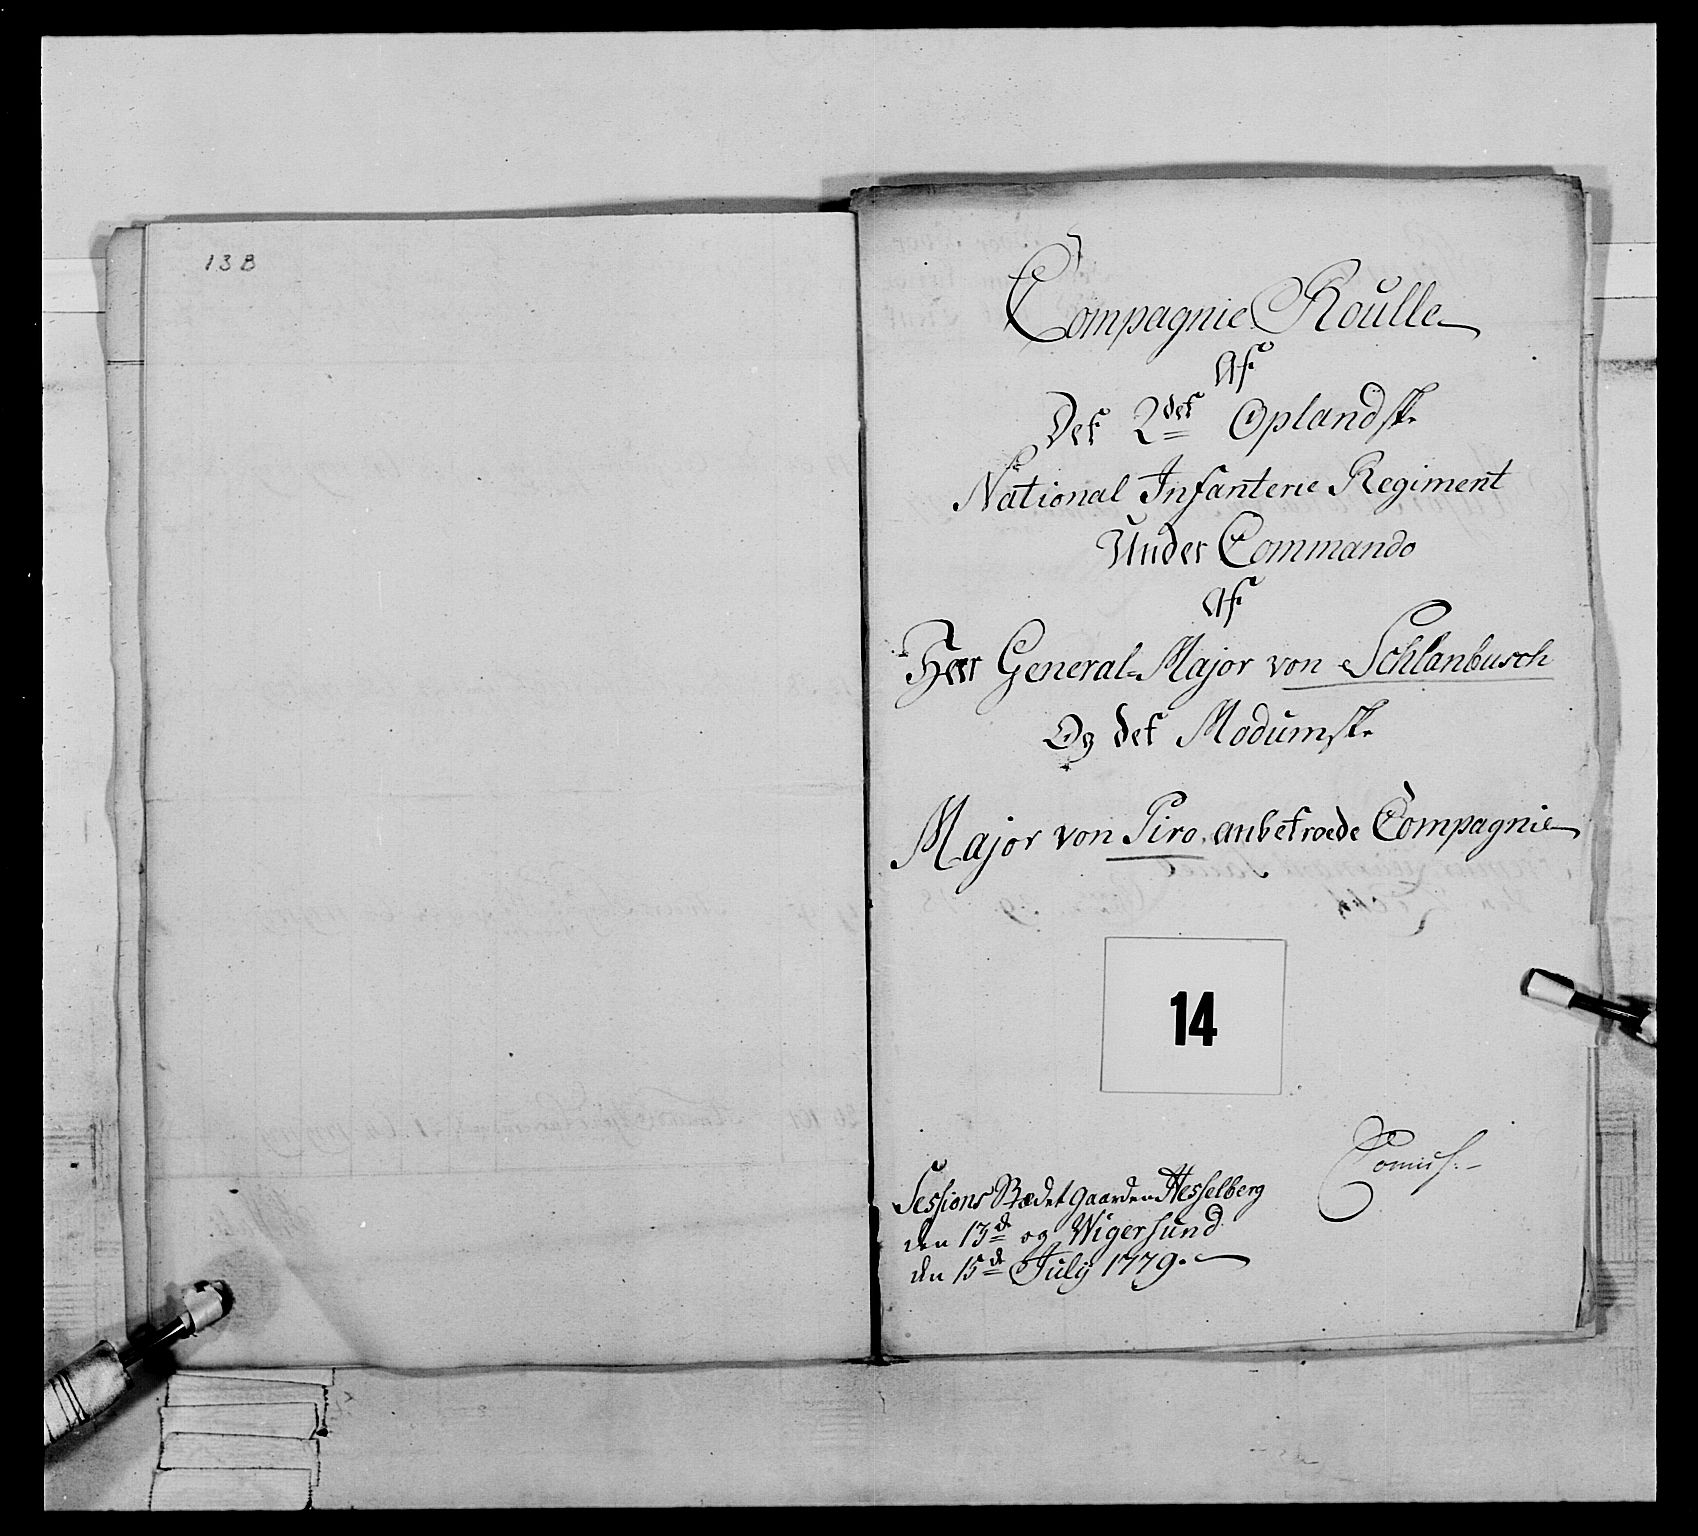 13B
Compagnie Roulle
Af
Det 2det Oplandske
National Infanterie Regiment
Under Commando
Af
Herr General-Major von Schlanbusch
Og det Modumske
Major von Piro anbetroede Compagnie
14
Sessions Stædet Gaarden Hesselberg
den 13de og Wigersund
den 15de July 1779.